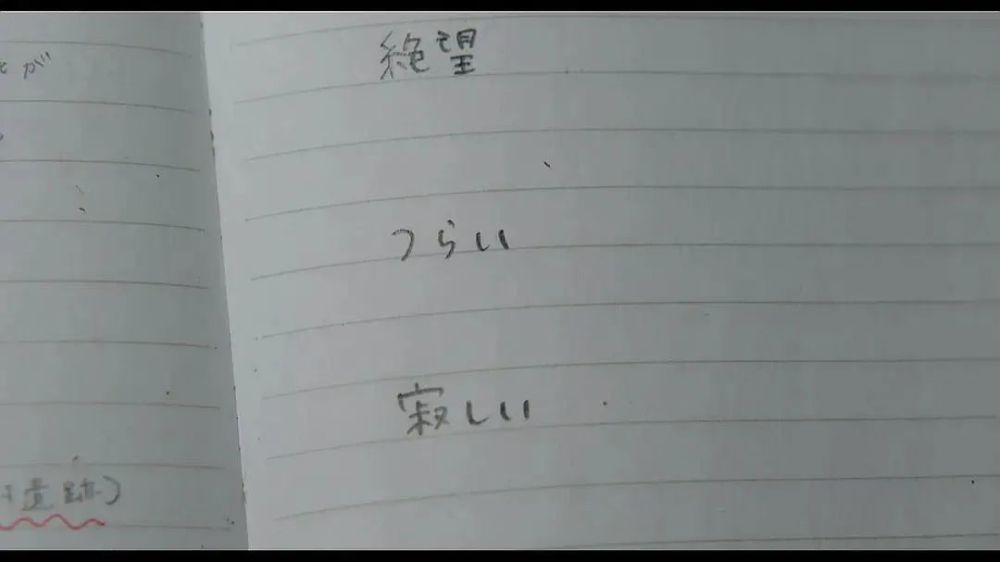 が
絶望
つらい
寂しい
遺跡)